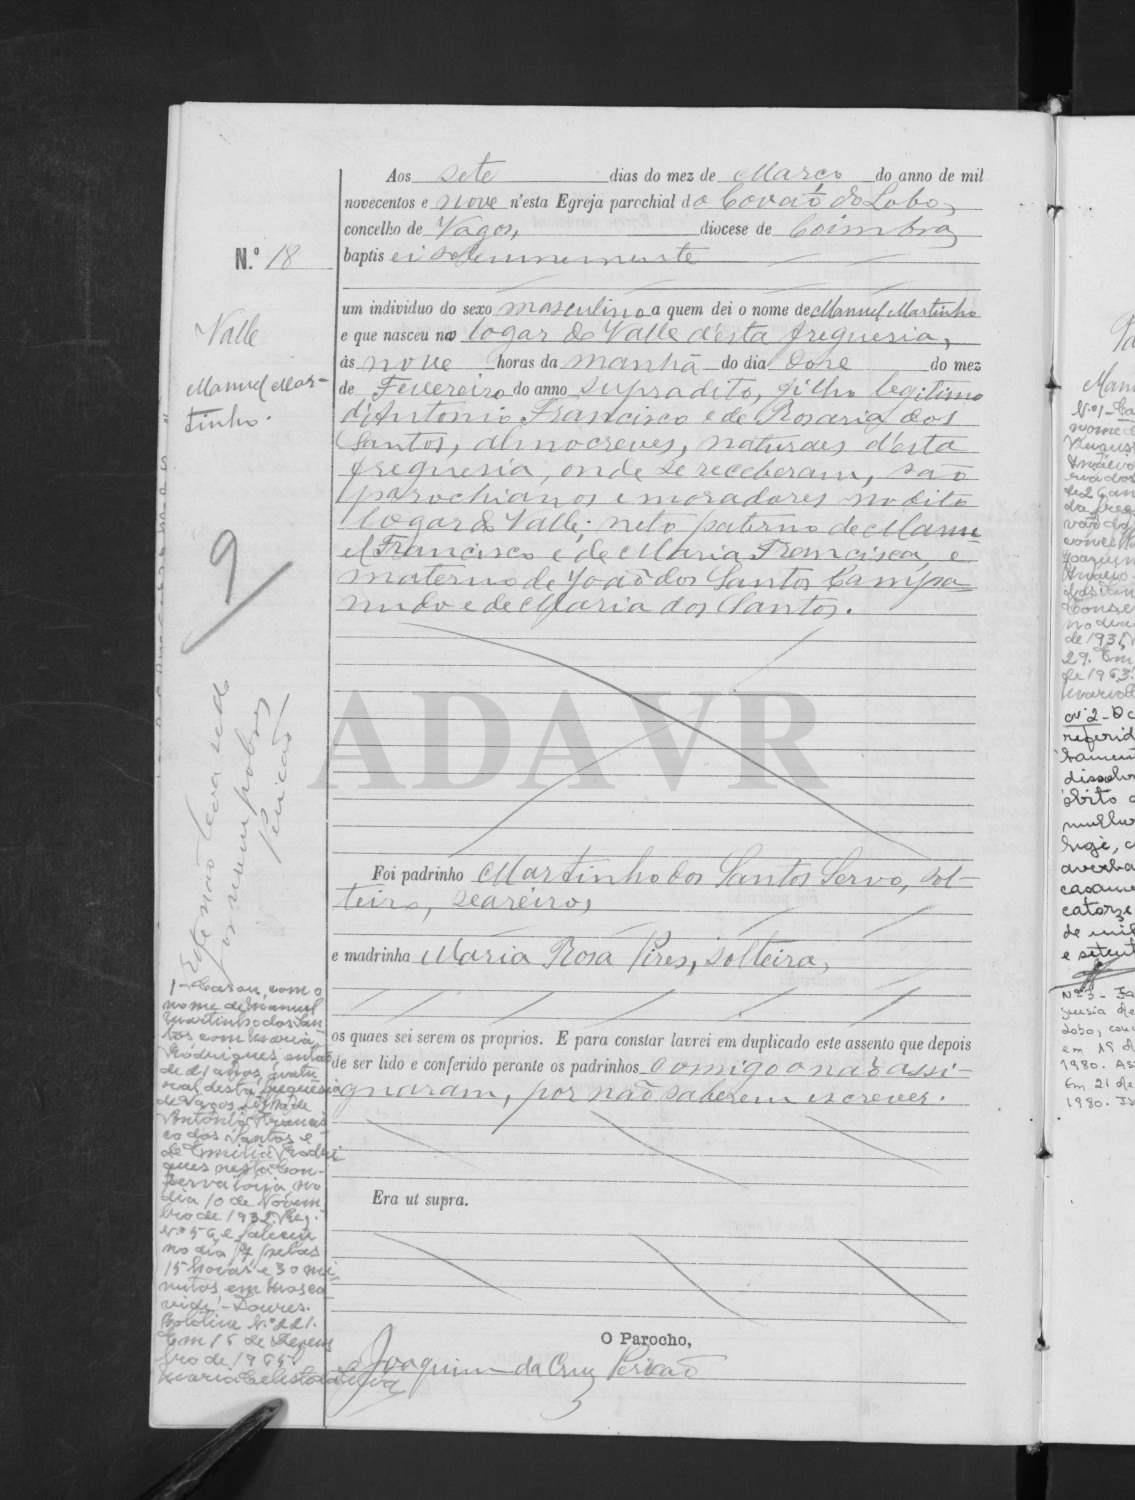 Aos sete dias do mez de Março do anno de mil
novecentos e nove n'esta Egreja parochial do Covão do Lobo,
concelho de Vagos, diocese de Coimbra,
baptisei solemnemente
N.º 18
um individuo do sexo masculino a quem dei o nome de Manuel Martinho
e que nasceu no logar do Valle d'esta freguesia,
ás nove horas da manhã do dia doze do mez
de Fevereiro do anno supradito, filho legitimo
d'Antonio Francisco e de Rosaria dos
Santos, almocreves, naturaes d'esta
freguesia, onde se receberam, são
parochianos e moradores no dito
logar do Valle; neto paterno de Manu
el Francisco e de Maria Francisca, e
materno de João dos Santos Campa
nudo e de Maria dos Santos.
Valle
Manuel Mar-
tinho.
9
Este não leva sedo
por serem pobres
Perião
ADAVR
Foi padrinho Martinho dos Santos Servo, sol-
teiro, seareiro,
e madrinha Maria Rosa Pires, solteira,
os quaes sei serem os proprios. E para constar lavrei em duplicado este assento que depois
de ser lido e conferido perante os padrinhos comigo o não assi-
gnaram, por não saberem escrever.
Era ut supra.
O Parocho,
Joaquim da Cruz Perião
1-Casou, com o
nome de Manuel
Martinho dos San-
tos com Maria
Rodrigues, entao
de 21 anos, natu
ral desta freguesia
de Vagos, filha de
António Francis
co dos Santos e
de Emilia Rodri
gues nesta Con-
servatoria no
dia 10 de Novem
bro de 1932. Reg.
Nº 56, e faleceu
no dia pelas
15 horas e 30 mi-
nutos, em Mosca-
vide - Loures.
Boletim Nº 221.
Em 15 de Dezem
bro de 1965.
Maria Celeste
Manu
nome
de 1931
29. Em
de 1963.
Nº 2 - O c
referid
dissolv
óbito
mulher
hoje, c
averba
casame
catorze
de mil
e setent
Nº 3 - Fa
guesia de
Lobo, con
em 19 d
1980. As
Em 21 de
1980.